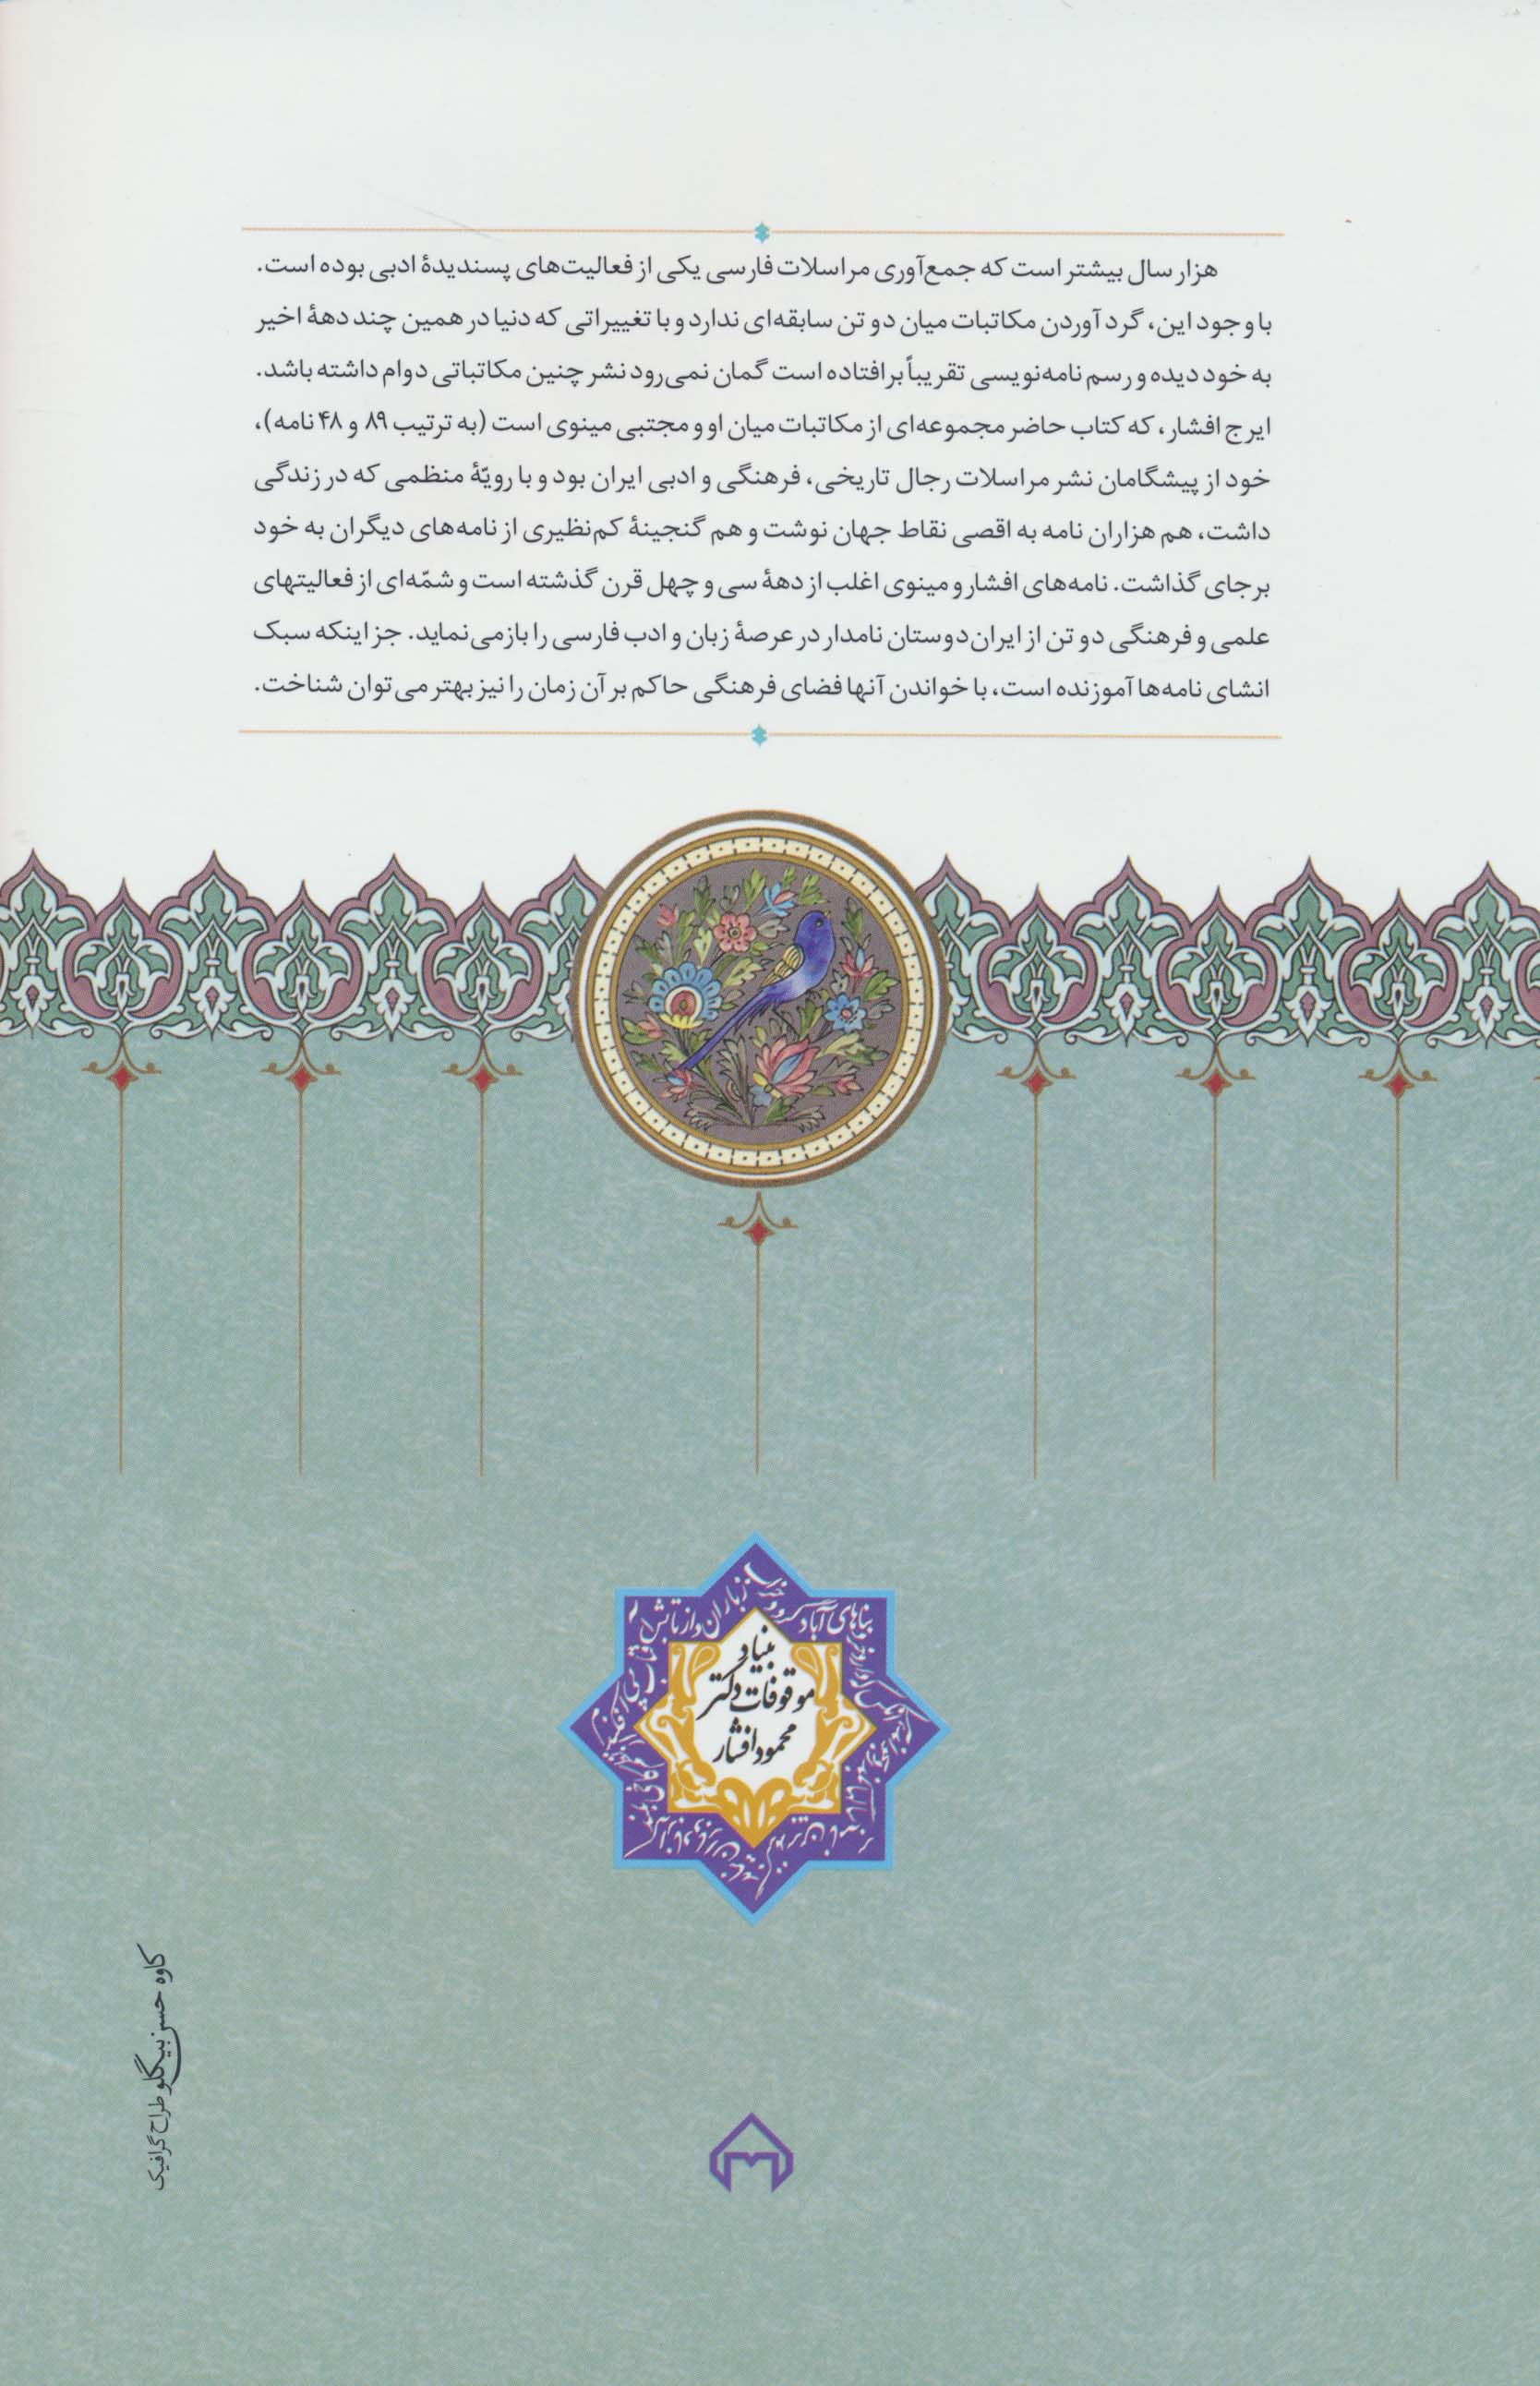 هزار سال بیشتر است که جمع‌آوری مراسلات فارسی یکی از فعالیت‌های پسندیدهٔ ادبی بوده است.
با وجود این، گرد آوردن مکاتبات میان دو تن سابقه‌ای ندارد و با تغییراتی که دنیا در همین چند دههٔ اخیر
به خود دیده و رسم نامه‌نویسی تقریباً برافتاده است گمان نمی‌رود نشر چنین مکاتباتی دوام داشته باشد.
ایرج افشار، که کتاب حاضر مجموعه‌ای از مکاتبات میان او و مجتبی مینوی است (به ترتیب ۸۹ و ۴۸ نامه)،
خود از پیشگامان نشر مراسلات رجال تاریخی، فرهنگی و ادبی ایران بود و با رویّهٔ منظمی که در زندگی
داشت، هم هزاران نامه به اقصی نقاط جهان نوشت و هم گنجینهٔ کم‌نظیری از نامه‌های دیگران به خود
برجای گذاشت. نامه‌های افشار و مینوی اغلب از دههٔ سی و چهل قرن گذشته است و شمّه‌ای از فعالیتهای
علمی و فرهنگی دو تن از ایران‌دوستان نامدار در عرصهٔ زبان و ادب فارسی را بازمی‌نماید. جز اینکه سبک
انشای نامه‌ها آموزنده است، با خواندن آنها فضای فرهنگی حاکم بر آن زمان را نیز بهتر می‌توان شناخت.
بناهای آباد گردد خراب
ز باران و از تابش آفتاب
بنیاد
موقوفات دکتر
محمود افشار
کاوه حسن‌بیگلو طراح گرافیک